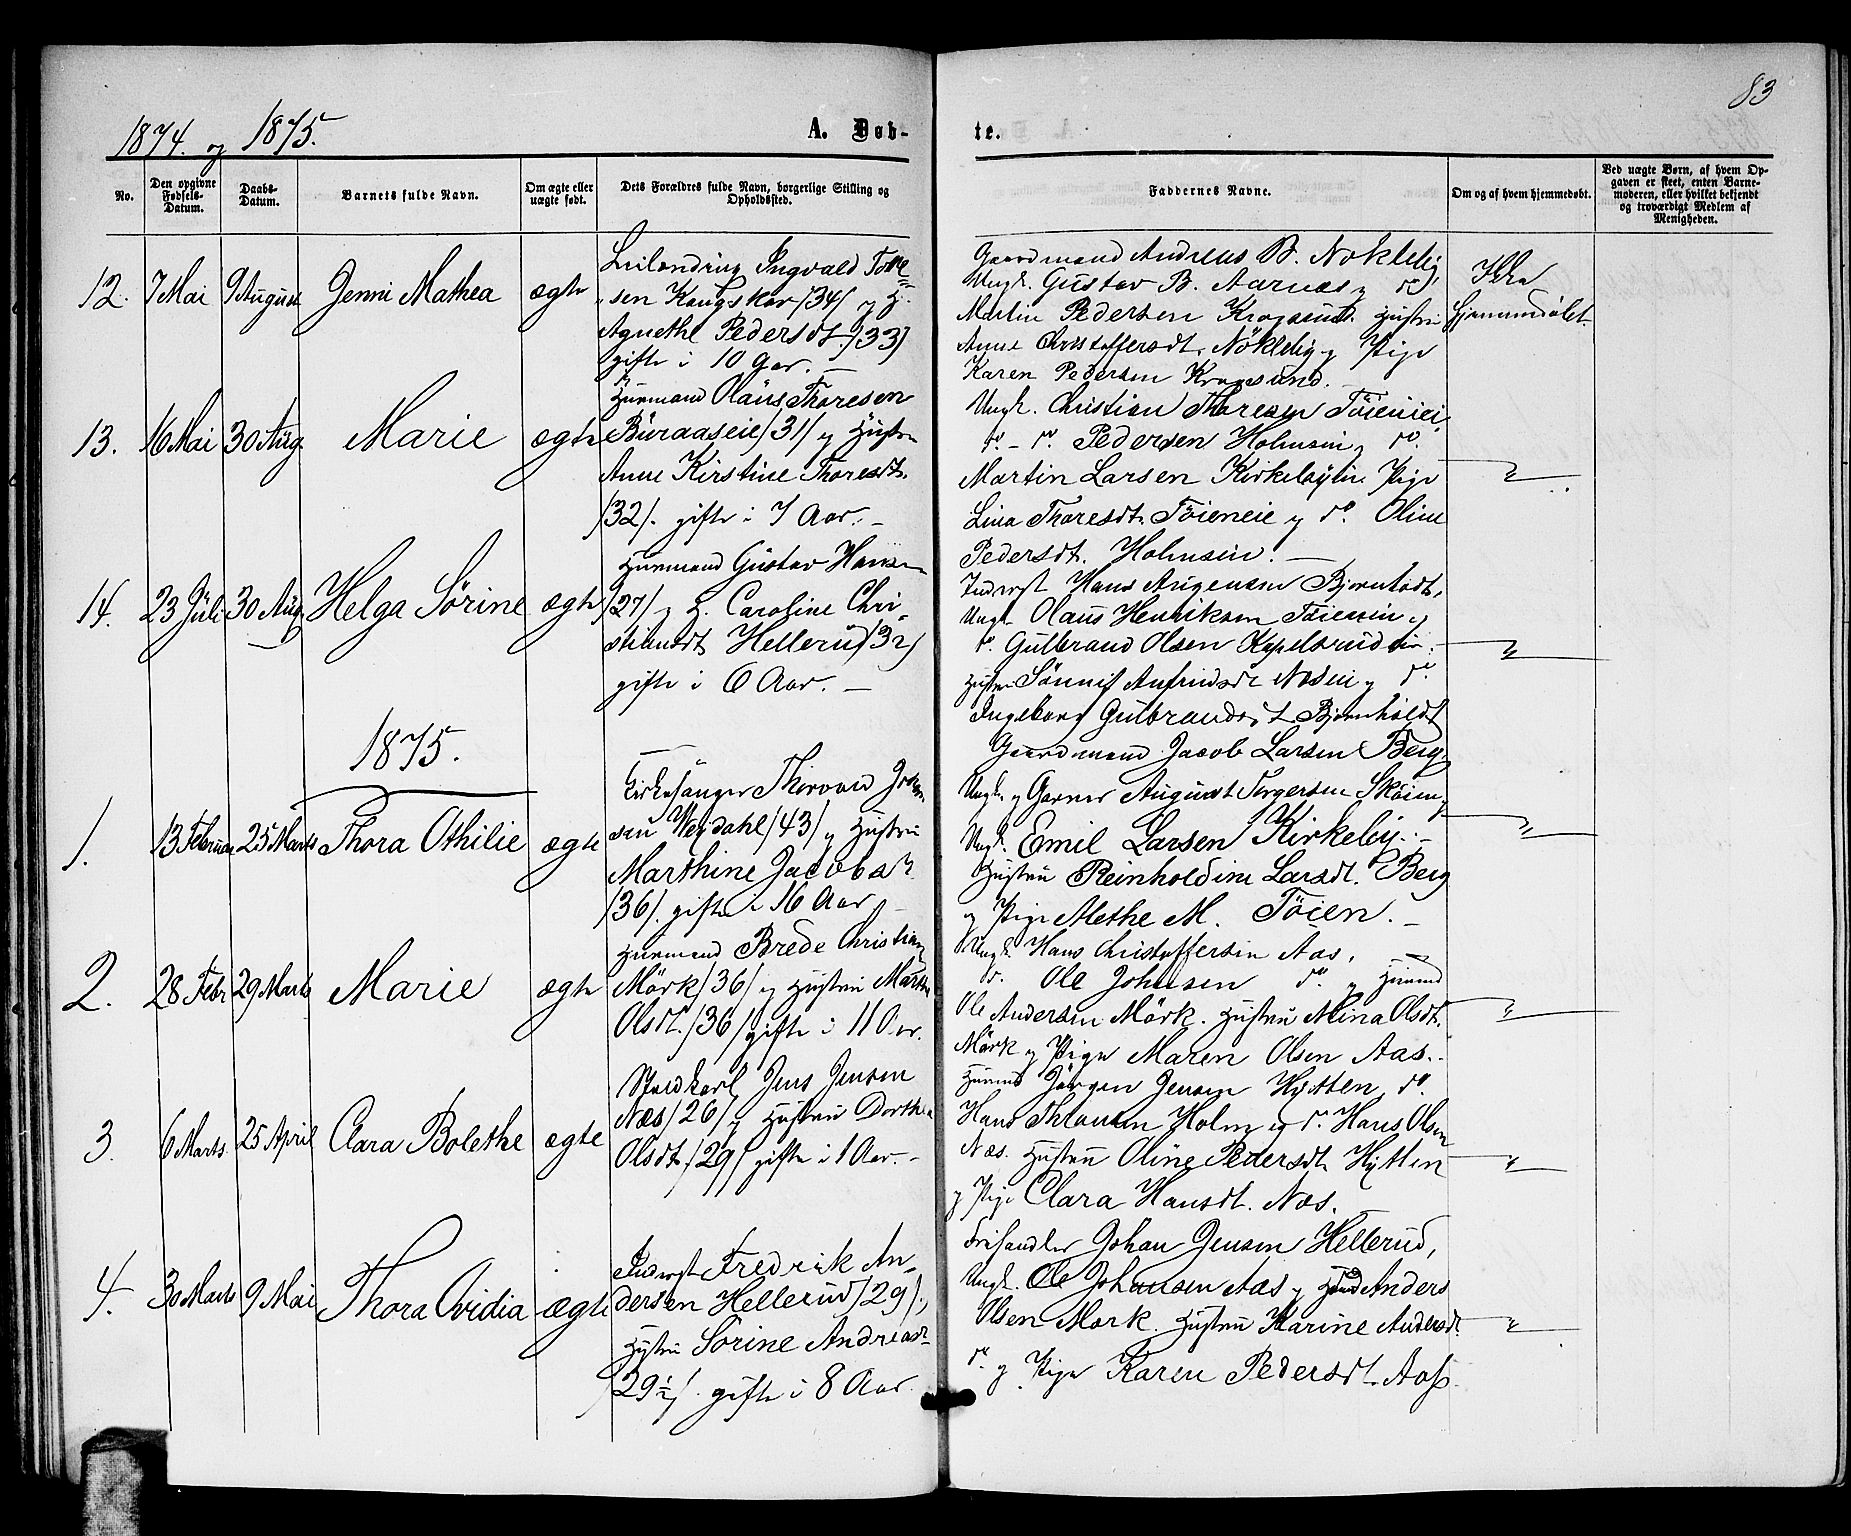 83
1874. og 1875.
A. Døb-
te.
No.
Den opgivne Fødsels-Datum.
Daabs-Datum.
Barnets fulde Navn.
Om ægte eller uægte født.
Dets Forældres fulde Navn, borgerlige Stilling og Opholdssted.
Faddernes Navne.
Om og af hvem hjemmedøbt.
Ved uægte Børn, af hvem Opgaven er skeet, enten Barnemoderen, eller hvilket bekjendt og troværdigt Medlem af Menigheden.
12. 7 Mai 9 August Jenni Mathea ægte
Leilending Ingvald Tolle
sen Kongskar /34/ og H.
Agnethe Pedersdt. /33/
gifte i 10 Aar. —
Gaardmand Andreas B. Nøkleby
Ungk. Gustav B. Aarnæs og do
Martin Pedersen Krogsund. Hustru
Anne Christoffersdt. Nökleby og Pige
Karen Pedersen Krogsund.
Ikke
hjemmedøbt.
13. 16 Mai 30 Aug. Marie ægte
Huusmand Olaüs Thoresen
Büraaseie /31/ og Hustru
Anne Kirstine Thoresdt.
/32/. gifte i 7 Aar. —
Ungk. Christian Thoresen Töieneie
do - do. Pedersen Holmseie og do.
Martin Larsen Kirkebyeie. Pige
Lina Thoresdt. Töieneie og do. Oline
Pedersdt. Holmseie. —
"
14. 23 Juli 30 Aug. Helga Sørine ægte
Huusmand Gustav Hansen
/27/ og H. Caroline Chri-
stiansdt Hellerud /32/
gifte i 6 Aar. —
Inderst Hans Bjørnholdt,
Ungk. Olaus Henriksen Töieneie og
do. Gulbrand Olsen Kapelsrudeie.
Hustru Næseie og do
Ingeborg Gulbrandsdt Bjørnholdt
"
1875.
1. 13 Februar 25 Marts Thora Othilie ægte
Kirkesanger Thorvald Johan
sen Weydahl /43/ og Hustru
Marthine Jacobsdt
/36/. gifte i 16 Aar —
Gaardmand Jacob Larsen Berg
Ungk. og Garver August Torgersen Skøien
Ungk. Emil Larsen Kirkeby. —
Hustru Reinholdine Larsdt. Berg
og Pige Methe M. Töien. —
"
2. 28 Febr 29 Marts Marie ægte
Huusmand Brede Christian
Mörk /36/ og Hustru Marthe
Olsdt. /36/ gifte i 11 Aar.
Ungk. Hans Christoffersen Aas,
do. Ole Johnsen do. og Huusmd
Ole Andersen Mörk. Hustru Mina Olsdt.
Mörk og Pige Maren Olsen Aas.
"
3. 6 Marts. 25 April Clara Bolethe ægte
Jens Jensen
Næs /26/ og Hustru Dorthea
Olsdt. /29/ gifte i 1 Aar. —
Huusmd Jörgen Jensen Hytten, do.
Hans Holm og do. Hans Olsen
Næs. Hustru Oline Pedersdt. Hytten
og Pige Clara Hansdt. Næs.
"
4. 30 Marts 9 Mai Thora Ovidia ægte
Inderst Fredrik An-
dersen Hellerud /29/,
Hustru Sörine Andreasdt
/29½/. gifte i 8 Aar.
Johan Jensen Hellerud,
Ungk. Ole Johansen Aas og Husmd Anders
Olsen Mørk. Hustru Karine Andersdt.
do. og Pige Karen Pedersdt. Aas.
"